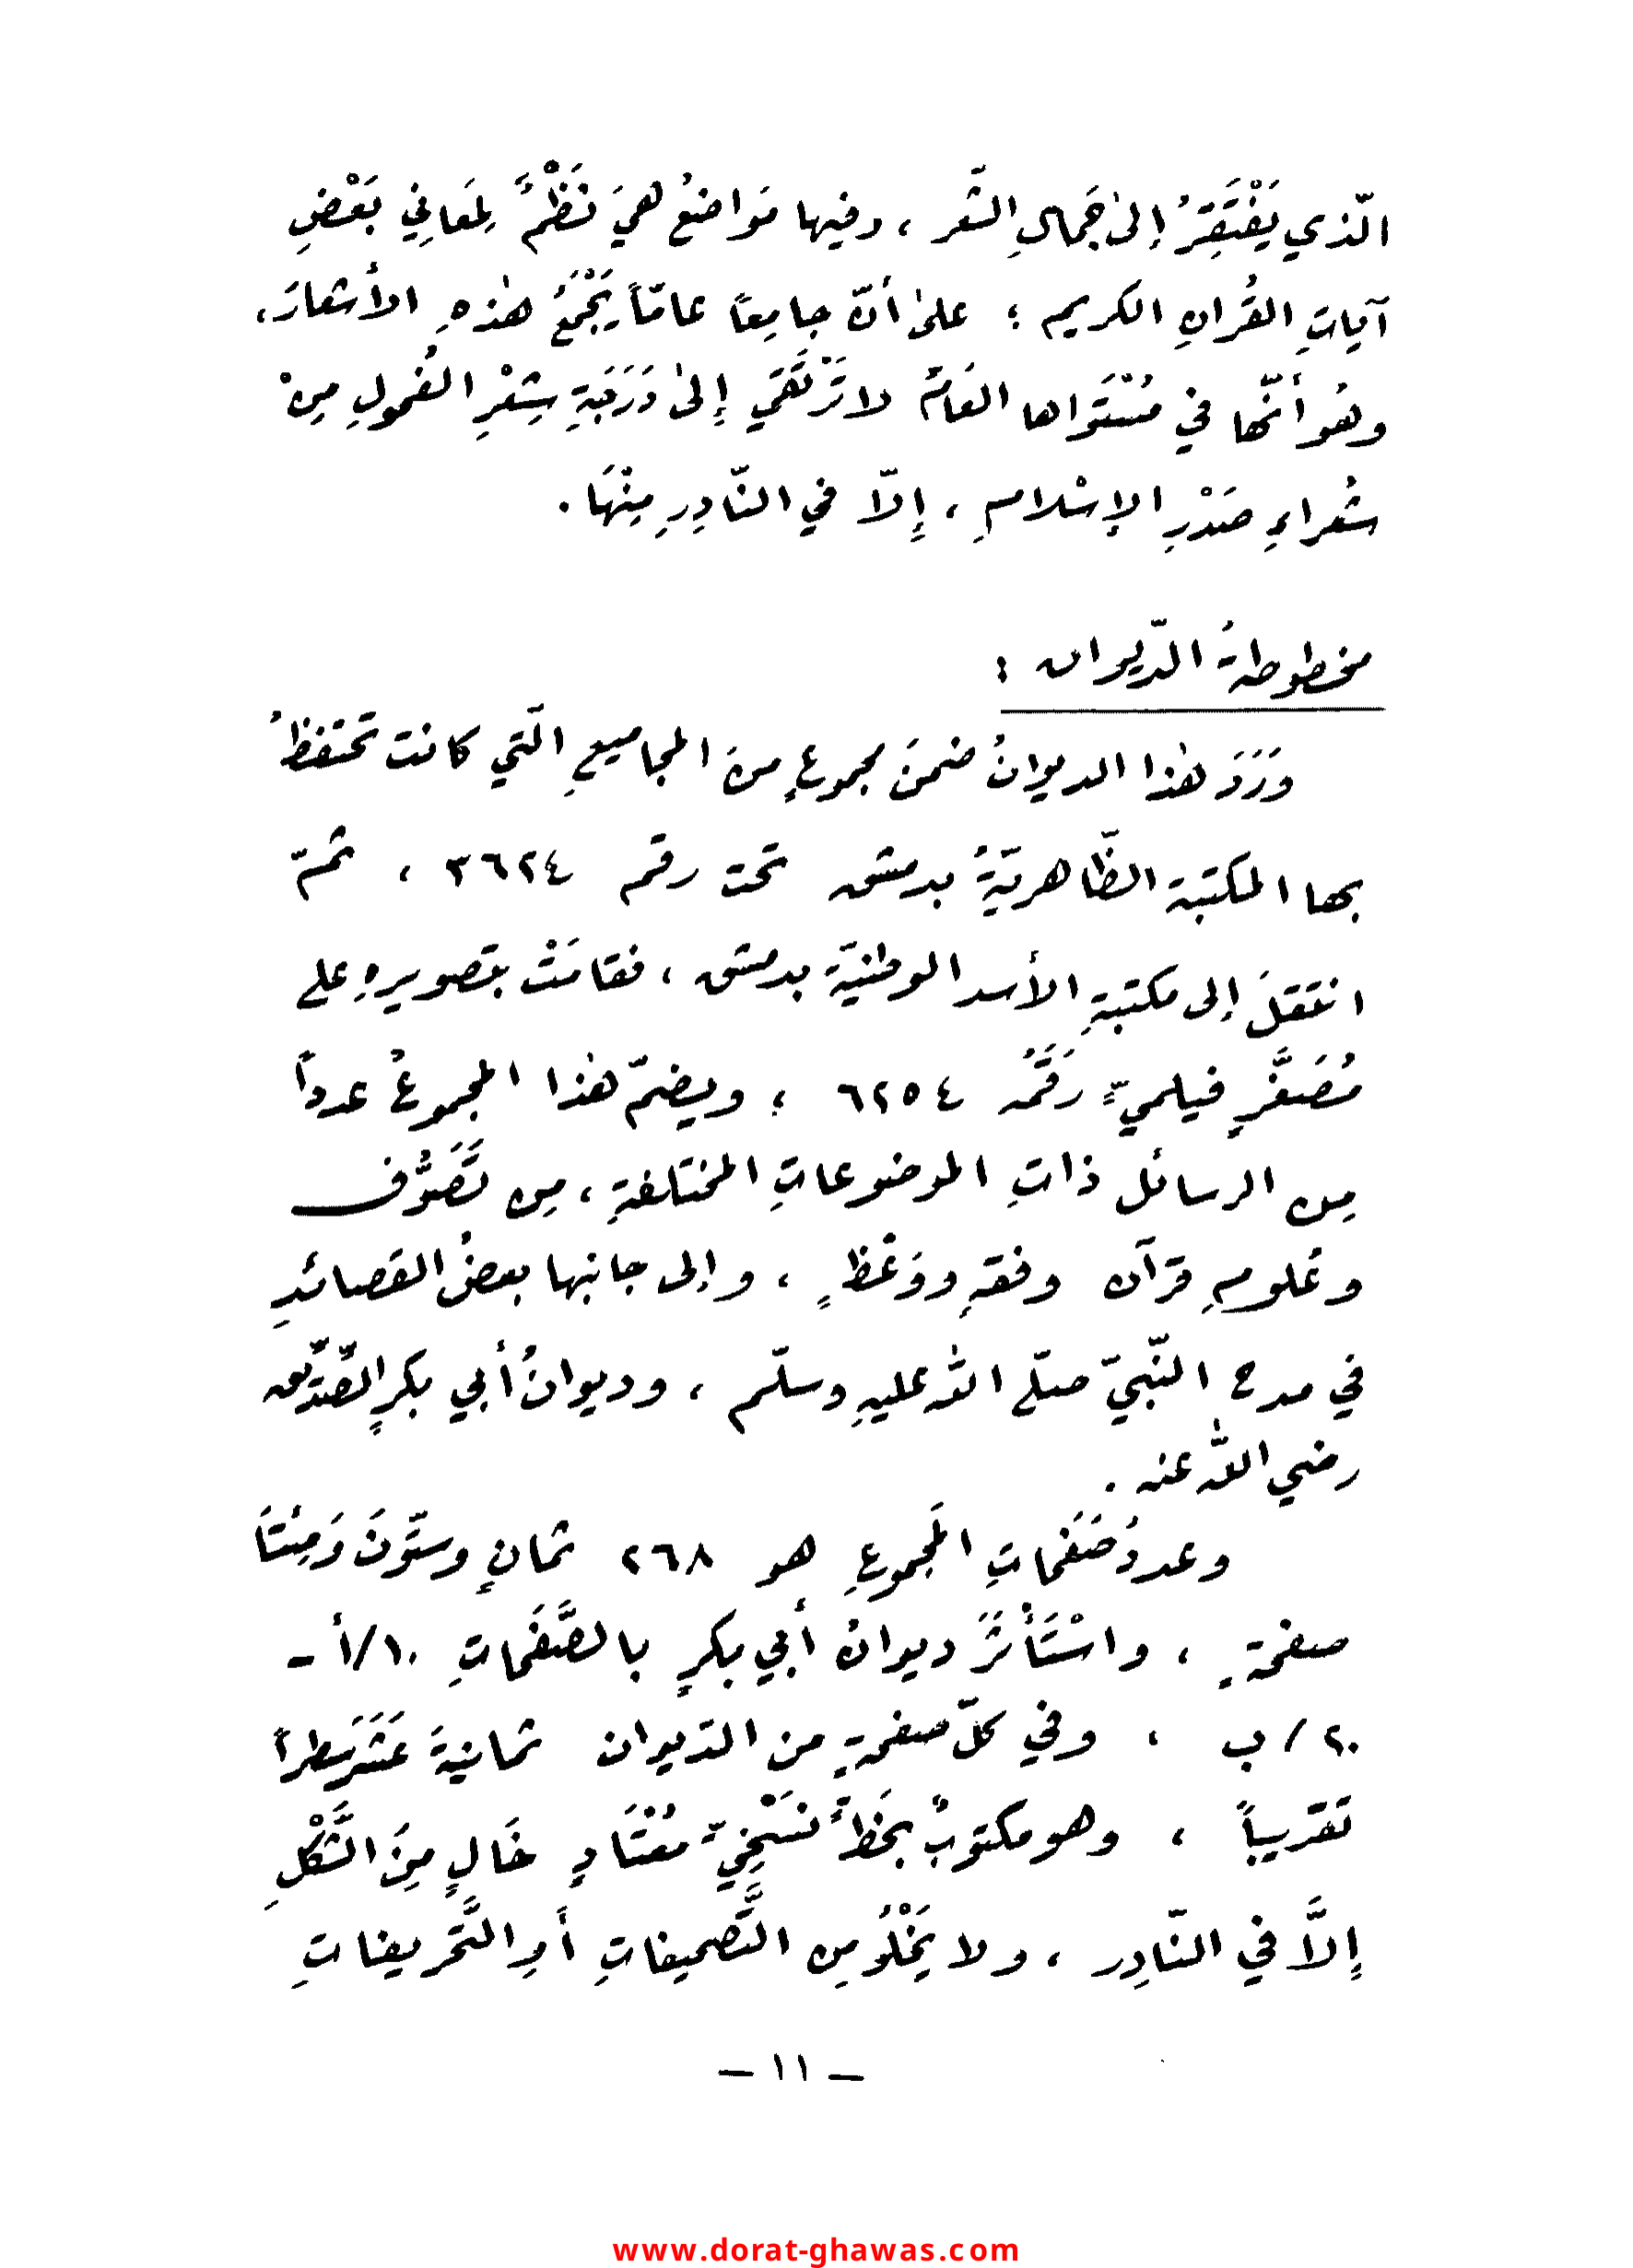 الّذي يَفْتَقِرُ إلىٰ جَمالِ الشّعر ، وفيها مَواضعُ هيَ نَظْمٌ لِمَعاني بَعْضِ
آياتِ القُرانِ الكريم ؛ علىٰ أنّ جامِعاً عامّاً يَجْمَعُ هٰذهِ الأشعارَ،
وهُو أنّها في مُسْتَواها العَامّ لا تَرْتَقي إلىٰ دَرَجَةِ شِعْرِ الفُحولِ مِنْ
شُعراءِ صَدْرِ الإسْلامِ ، إلّا في النّادِرِ مِنْهَا .
مخطوطةُ الدّيوان :
وَرَدَ هٰذا الديوانُ ضمنَ مجموعٍ منَ المجاميعِ الّتي كانت تحتفظُ
بها المكتبة الظّاهريّةُ بدمشق تحت رقم ٣٦٢٤ ، ثمّ
انتقلَ إلى مكتبةِ الأسد الوطنيّة بدمشق ، فقامَتْ بتصويرهِ على
مُصَغَّرٍ فيلميٍّ رَقَمُه ٦٢٥٤ ؛ ويضمّ هٰذا المجموعُ عدداً
مِن الرسائل ذاتِ الموضوعاتِ المختلفةِ ، مِن تَصَوُّف
وعُلومِ قرآن وفقهِ ووَعْظٍ ، وإلى جانبها بعضُ القصائدِ
في مدح النّبيّ صلّى الله عليهِ وسلّم ، وديوانُ أبي بكرٍ الصّدّيق
رضي الله عنه .
وعددُ صَفَحاتِ المَجموعِ هو ٢٦٨ ثمانٍ وستّونَ وَمِئتَا
صفحةٍ ، واسْتَأْثَرَ ديوانُ أبي بكرٍ بالصَّفَحاتِ ١٠/أ -
٢٠/ب ، وفي كلّ صفحةٍ من الدّيوان ثمانيةَ عَشَرَ سطراً
تقريباً ، وهو مكتوبٌ بخَطٍّ نَسْخيٍّ مُعْتَادٍ خَالٍ مِنَ الشَّكْلِ
إلَّا في النّادِر ، ولا يَخْلُو مِن التَّصحيفاتِ أوِ التَّحريفاتِ
- ١١ -
www.dorat-ghawas.com